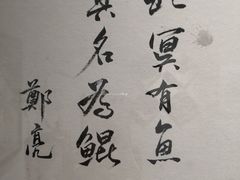 北冥有魚
其名為鯤
鄭亮